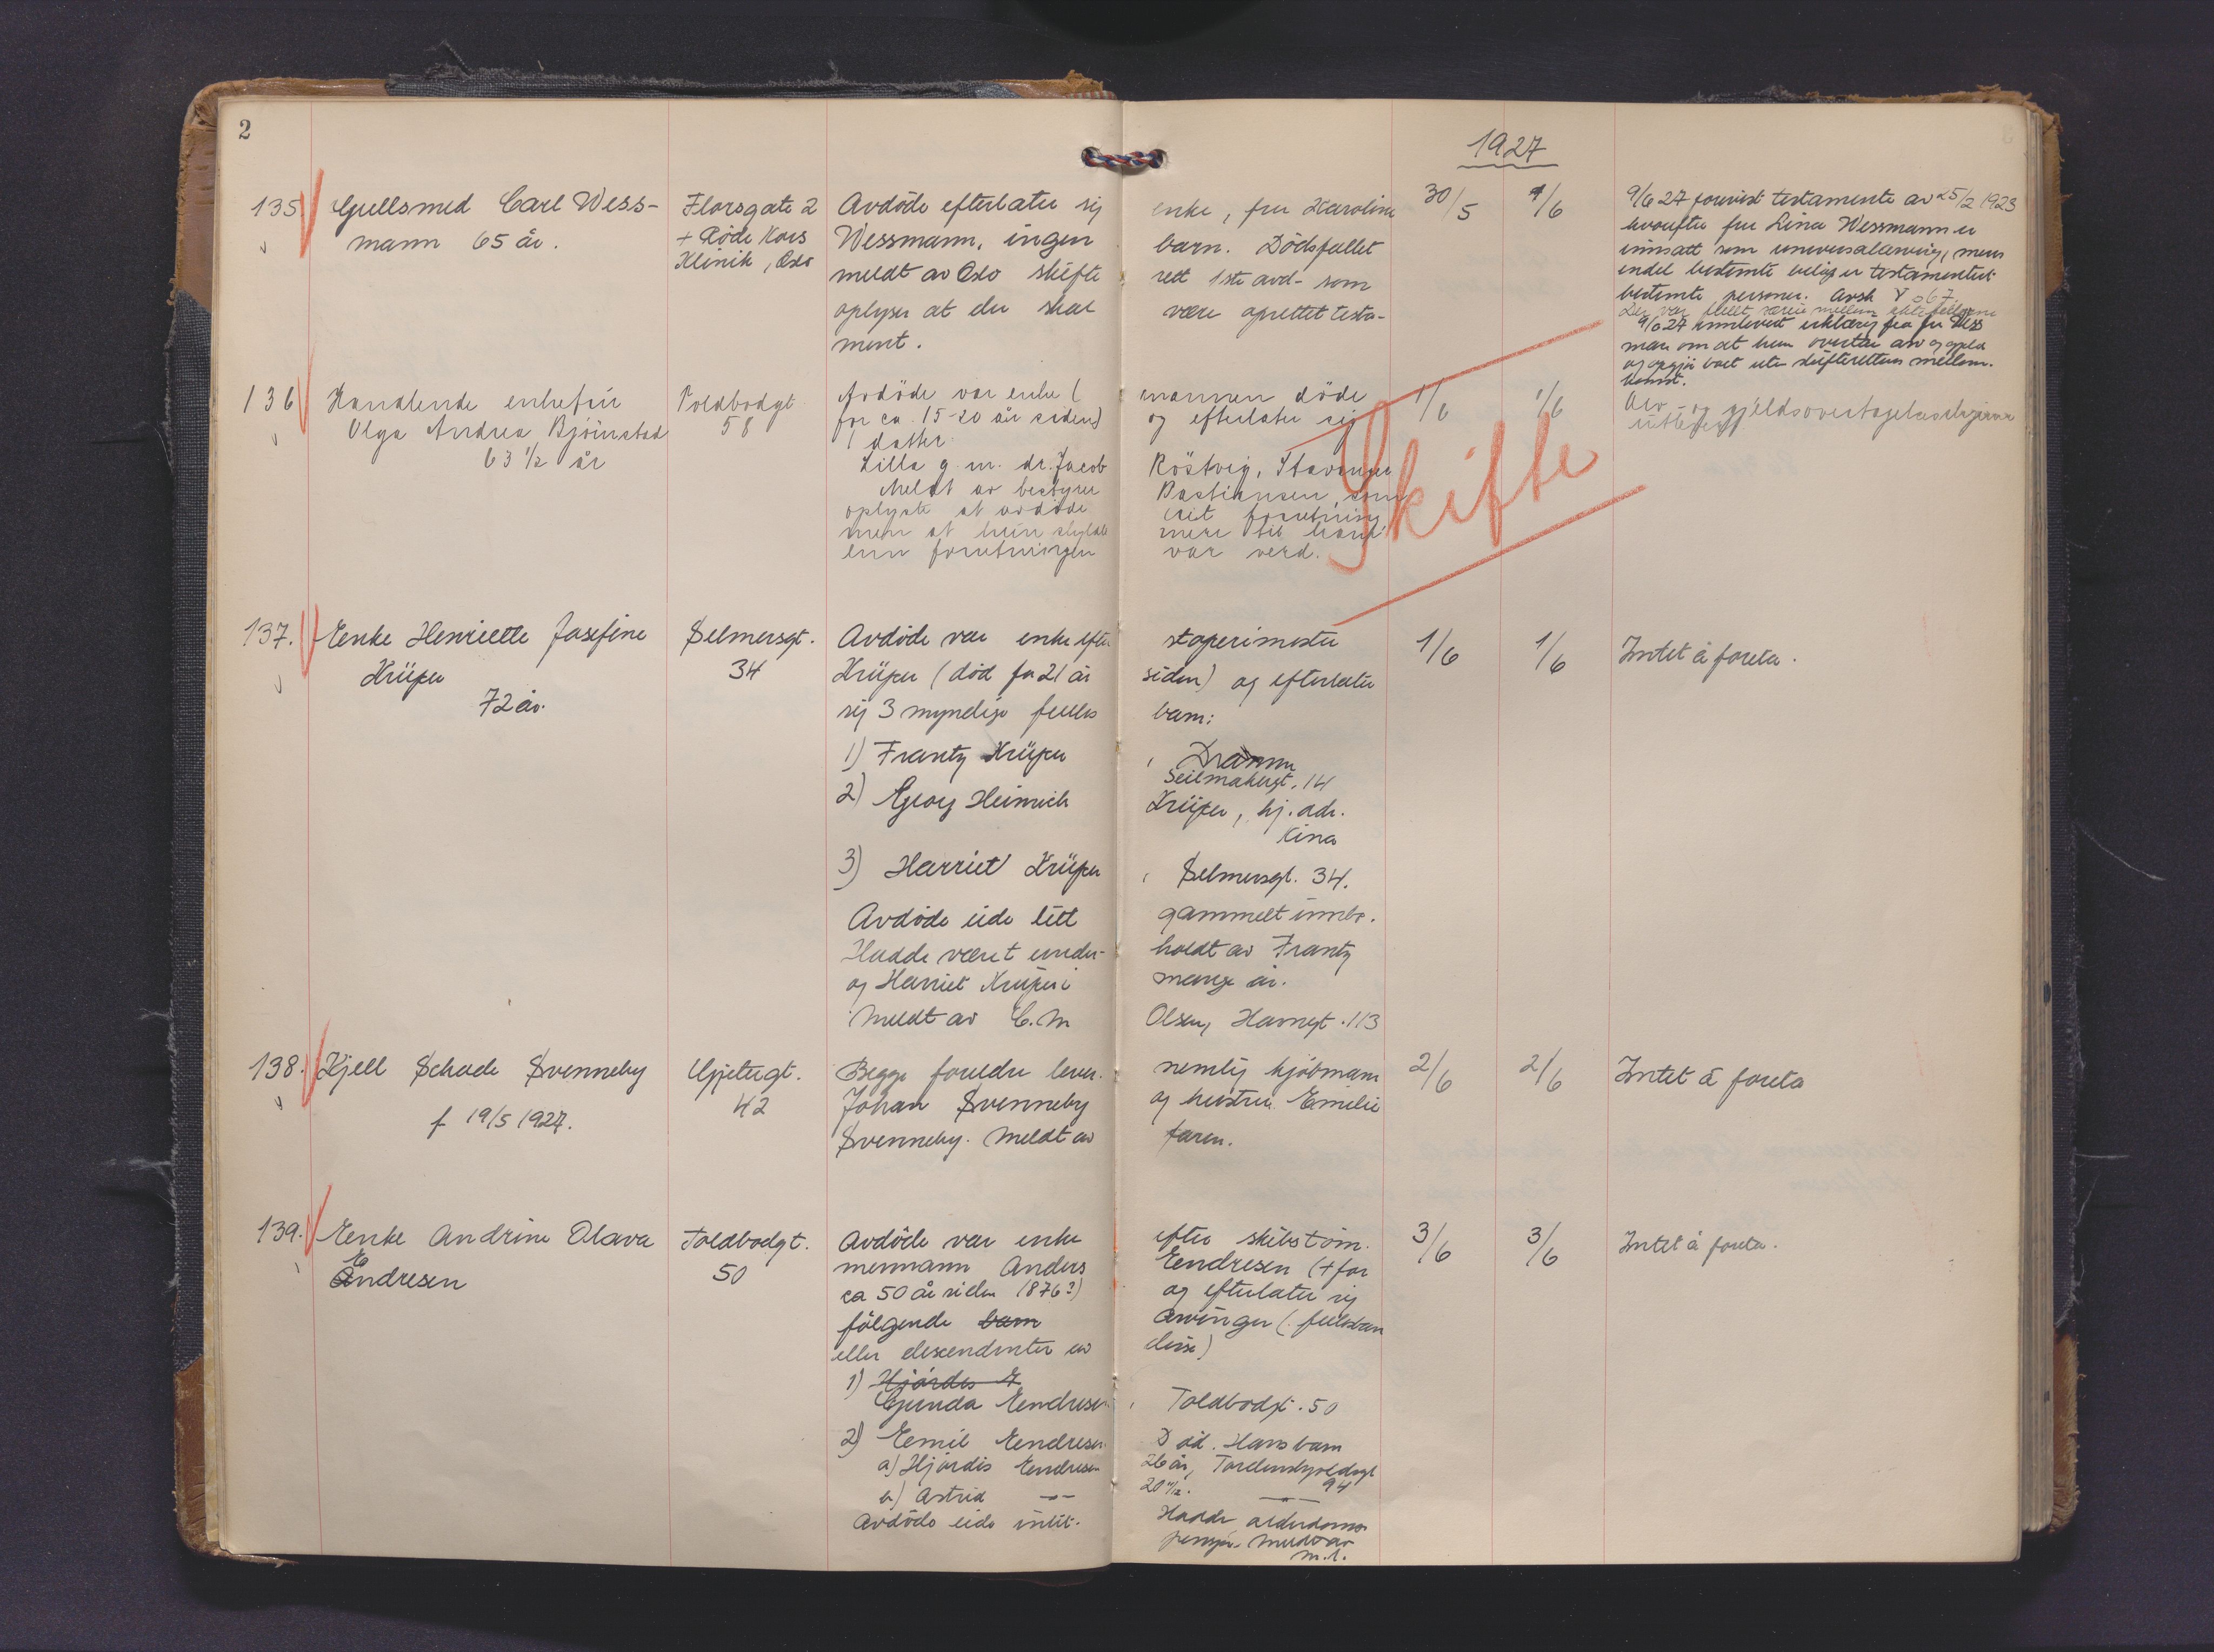 2
1927
135 Gullsmed Carl Wess- Florsgate 2 Avdöde efterlater sig enke, fru Karoline 30/5 1/6 9/6 27 fremvist testamente av 25/2 1923
mann 65 år. + Röde Kors Wessmann, ingen barn. Dödsfallet hvorefter fru Lina Wessmann er
Klinik, Oslo meldt av Oslo skifte rett 1ste avd- som innsatt som universalarving, mens
oplyser at der skal være oprettet testa- endel bestemte beløp er testamentert
ment. bestemte personer. Avsk
Der var særeie mellem ektefellerne
9/6 27 innlevert erklæring fra fru Wess
man om at hun overtar arv og gjeld
og opgjør boet uten skifterettens mellem-
komst.
136 Handlende enkefru Toldbodgt. Avdöde var enke ( mannen döde 1/6 1/6 Arv- og gjeldsovertagelses
Olga Andrea Björnstad 58 for ca. 15-20 år siden) og efterlater sig utlevert
63 1/2 år 1 datter.
Lilla g. m. dr. Jacob Röstvig, Stavanger
Meldt av bestyrer Bastiansen, som
oplyste at avdöde forretning
men at hun skyldte mere til
enn forretningen var verd.
Skifte
137. Enke Henriette Josefine Selmersgt. Avdöde var enke efter stoperimester 1/6 1/6 Intet å foreta.
Krüper 34 Krüper (död for 21 år siden) og efterlater
72 år. sig 3 myndige felles barn:
1) Frantz Krüper , Drammen
Seilmakergt. 14
2) Georg Heinrich Krüper, hj. adr.
Kina
3) Harriet Krüper , Selmersgt. 34.
Avdöde eide litt gammelt innbo.
Hadde været under- holdt av Frantz
og Harriet Krüper i mange år.
Meldt av C. M. Olsen, Havnegt. 113
138. Kjell Schade Svenneby Gjetergt. Begge foreldre lever. nemlig kjöbmann 2/6 2/6 Intet å foreta
f 19/5 1927. 42 Johan Svenneby og hustru Emilie
Svenneby. Meldt av faren.
139. Enke Andrine Olava Toldbodgt. Avdöde var enke efter skibstöm- 3/6 3/6 Intet å foreta.
Endresen 50 mermann Anders Endresen (+ for
ca 50 år siden 1876?) og efterlater sig
fölgende barn arvinger (: fellesbarn
eller descendenter av disse)
1) Hjördis E
Gunda Endresen , Toldbodgt. 50
2) Emil Endresen Död. Hans barn
a) Hjördis Endresen 26 år, Tordenskjoldsgt
94
b) Astrid —"— 20 1/2. —"—
Avdöde eide intet. Hadde alderdoms-
pensjon. Meldt av